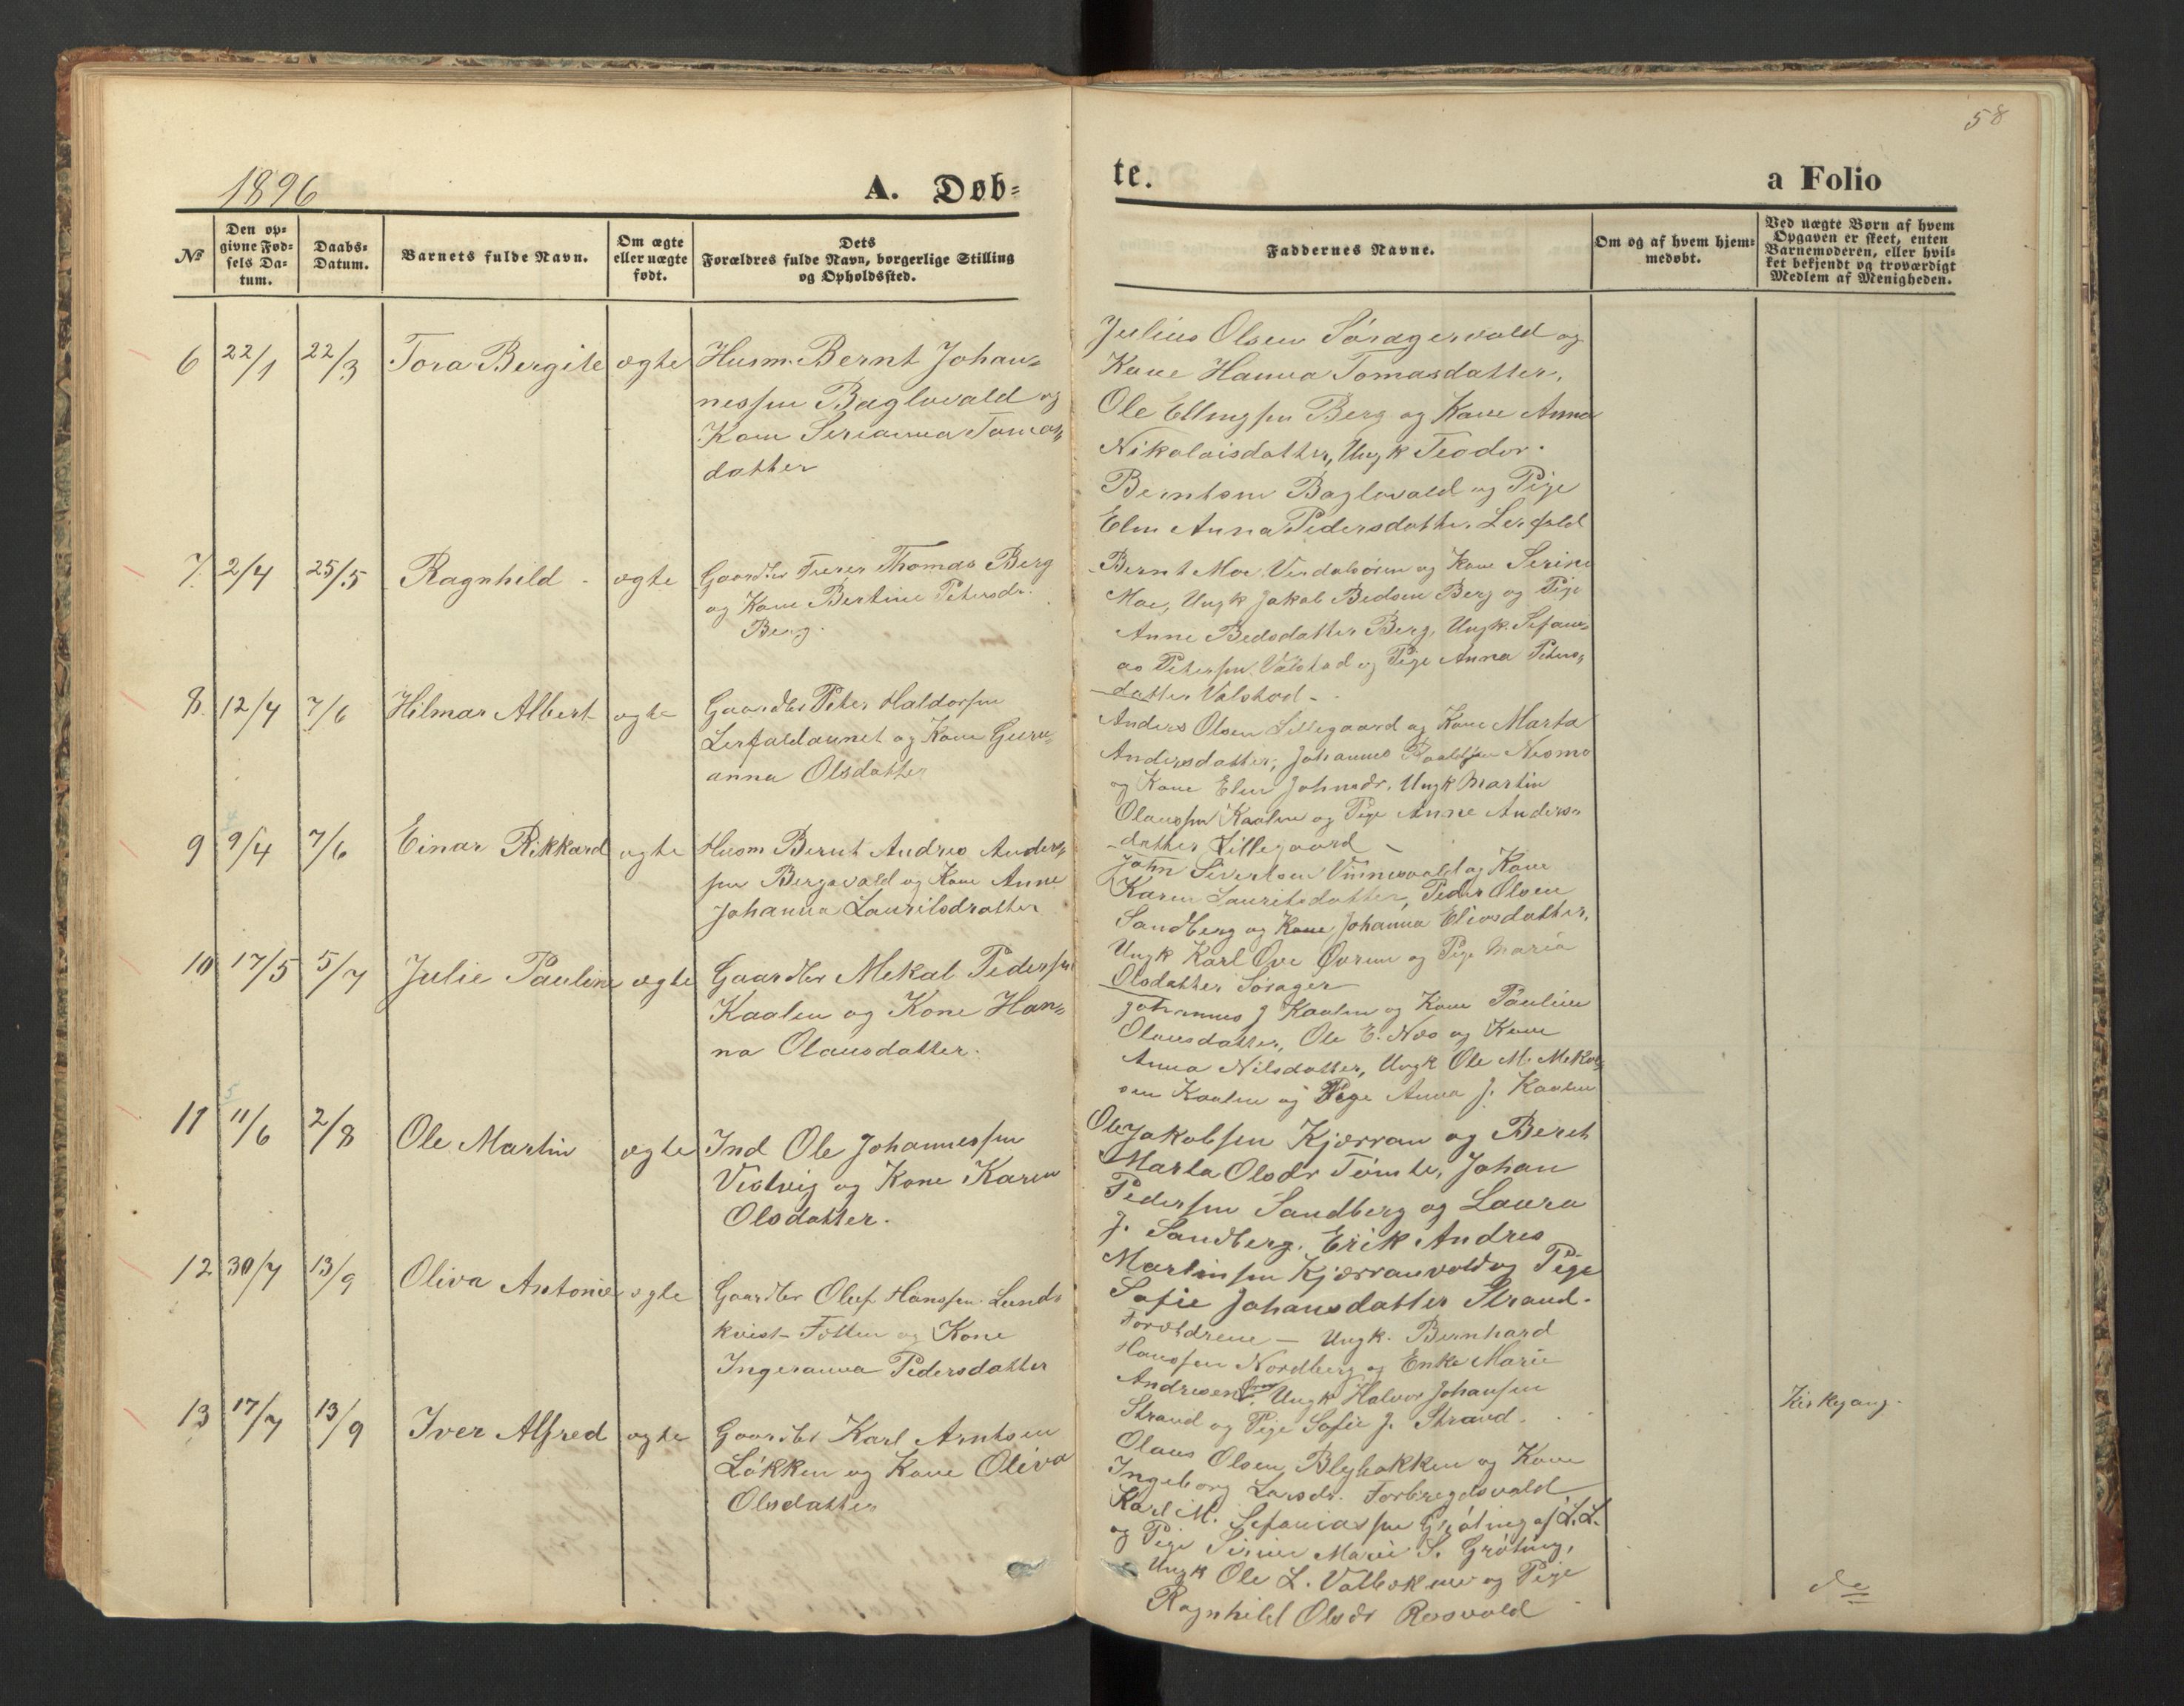 58
1896
A. Døb=
te.
a Folio
No
Den op=
givne Fød=
sels Da=
tum.
Daabs=
Datum.
Barnets fulde Navn.
Om ægte
eller uægte
født.
Dets
Forældres fulde Navn, borgerlige Stilling
og Opholdssted.
Faddernes Navne.
Om og af hvem hjem=
medøbt.
Ved uægte Børn af hvem
Opgaven er skeet, enten
Barnemoderen, eller hvil=
ket bekjendt og troværdigt
Medlem af Menigheden.
6 22/1 22/3 Tora Bergite ægte Husm. Bernt Johan=
nessen Baglovald og
Kone Serianna Tomas=
datter
Julius Olsen Söragervold og
Kone Hanna Tomasdatter,
Ole Ellingsen Berg og Kone Anna
Nikolaisdatter, Ungk Teodor
Berntsen Baglovald og Pige
Elen Anna Pedersdatter Lerfald
7. 2/4 25/5 Ragnhild - ægte Gaardbr Thomas Berg
og Kone Bertine Petersdr.
Berg.
Bernt Moe, Verdalsören og Kone Serine
Moe, Ungk Jakob Bedsen Berg og Pige
Anne Bedsdatter Berg, Ungk. Sefani=
as Petersen Valstad og Pige Anna Peters=
datter Valstad -
8. 12/4 7/6 Hilmar Albert ægte Gaardbr Peter Haldorsen
Lerfaldaunet og Kone Guru=
anna Olsdatter
Anders Olsen Lillegaard og Kone Marta
Andersdatter, Johannes Nesmo
og Kone Elen Johnsdr, Ungk Martin
Olaussen Kaalen og Pige Anne Anders=
datter Lillegaard -
9 9/4 7/6 Einar Rikkard ægte Husm Bernt Andreas Anders=
sen Bergsvald og Kone Anne
Johanna Lauritsdatter
John Sivertsen Vinnesvald og Kone
Karen Lauritsdatter, Peder Olsen
Sandberg og Kone Johanna Eliasdatter,
Ungk Karl Ove Ovrum og Pige Maria
Olsdatter Sörager
10 17/5 5/7 Julie Pauline ægte Gaardbr Mekal Pedersen
Kaalen og Kone Han=
na Olausdatter.
Johannes J Kaalen og Kone Pauline
Olausdatter, Ole E. Næs og Kone
Anna Nilsdatter, Ungk Ole M. Mekal=
sen Kaalen og Pige Anna J. Kaalen
5
11 11/6 2/8 Ole Martin ægte Ind Ole Johannessen
Vestvig og Kone Karen
Olsdatter.
Ole Jakobsen Kjærran og Beret
Marta Olsdr Tömte, Johan
Pedersen Sandberg og Laura
J. Sandberg. Erik Andres
Martinsen Kjærranvold og Pige
Sofie Johansdatter Strand.
12 30/7 13/9 Oliva Antonie ægte Gaardbr Oluf Hanssen Lund=
kvist- Tolten og Kone
Ingeranna Pedersdatter
Forældrene - Ungk. Bernhard
Hanssen Nordberg og Enke Marie
Andresen Ungk Halvor Johansen
Strand og Pige Sofie J. Strand.
Kirkegang.
13 17/7 13/9 Iver Alfred ægte Gaardbr Karl Arntsen
Løkken og Kone Oliva
Olsdatter
Olaus Olsen Blybakken og Kone
Ingeborg Larsdr. Forbregdsvald
Karl M. Sefaniassen Gröting af L. L.
og Pige Marie S. Gröting,
Ungk Ole L. Valbekmo og Pige
Ragnhild Olsdr Rosvold
do